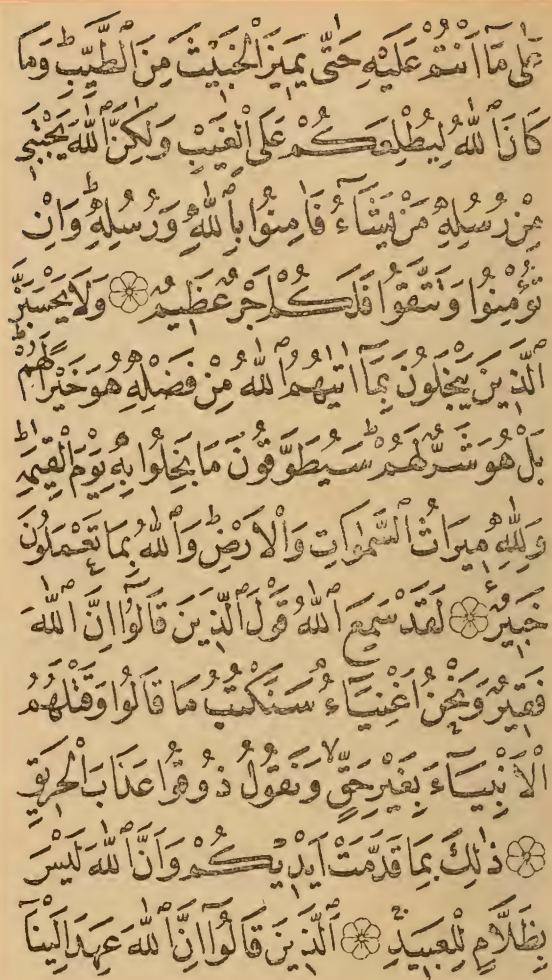 عَلٰى مَٓا اَنْتُمْ عَلَيْهِ حَتّٰى يَمِيزَ الْخَبِيثَ مِنَ الطَّيِّبِۜ وَمَا
كَانَ اللّٰهُ لِيُطْلِعَكُمْ عَلَى الْغَيْبِ وَلٰكِنَّ اللّٰهَ يَجْتَبِى
مِنْ رُسُلِهٖ مَنْ يَشَٓاءُ فَاٰمِنُوا بِاللّٰهِ وَرُسُلِهٖۜ وَاِنْ
تُؤْمِنُوا وَتَتَّقُوا فَلَكُمْ اَجْرٌ عَظِيمٌ ۞ وَلَا يَحْسَبَنَّ
الَّذِينَ يَبْخَلُونَ بِمَٓا اٰتٰيهُمُ اللّٰهُ مِنْ فَضْلِهٖ هُوَ خَيْرًا لَهُمْۜ
بَلْ هُوَ شَرٌّ لَهُمْۜ سَيُطَوَّقُونَ مَا بَخِلُوا بِهٖ يَوْمَ الْقِيٰمَةِۜ
وَلِلّٰهِ مِيرَاثُ السَّمٰوَاتِ وَالْاَرْضِۜ وَاللّٰهُ بِمَا تَعْمَلُونَ
خَبِيرٌ ۞ لَقَدْ سَمِعَ اللّٰهُ قَوْلَ الَّذِينَ قَالُٓوا اِنَّ اللّٰهَ
فَقِيرٌ وَنَحْنُ اَغْنِيَٓاءُ سَنَكْتُبُ مَا قَالُوا وَقَتْلَهُمُ
الْاَنْبِيَٓاءَ بِغَيْرِ حَقٍّ وَنَقُولُ ذُوقُوا عَذَابَ الْحَرِيقِ
۞ ذٰلِكَ بِمَا قَدَّمَتْ اَيْدِيكُمْ وَاَنَّ اللّٰهَ لَيْسَ
بِظَلَّامٍ لِلْعَبِيدِ ۞ اَلَّذِينَ قَالُٓوا اِنَّ اللّٰهَ عَهِدَ اِلَيْنَٓا